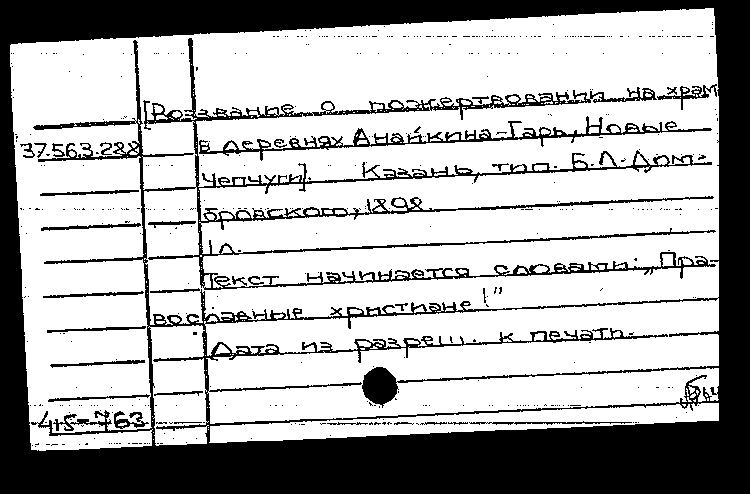 [Воззвание о пожертвовании на храм
37.563.288 в деревнях Анайкина-Гарь, Новые
Чепчуги]. Казань, тип. Б.Л. Дом-
бровского, 1898.
1 л.
Текст начинается словами: „Пра-
вославные христиане!"
Дата из разреш. к печати.
415-763